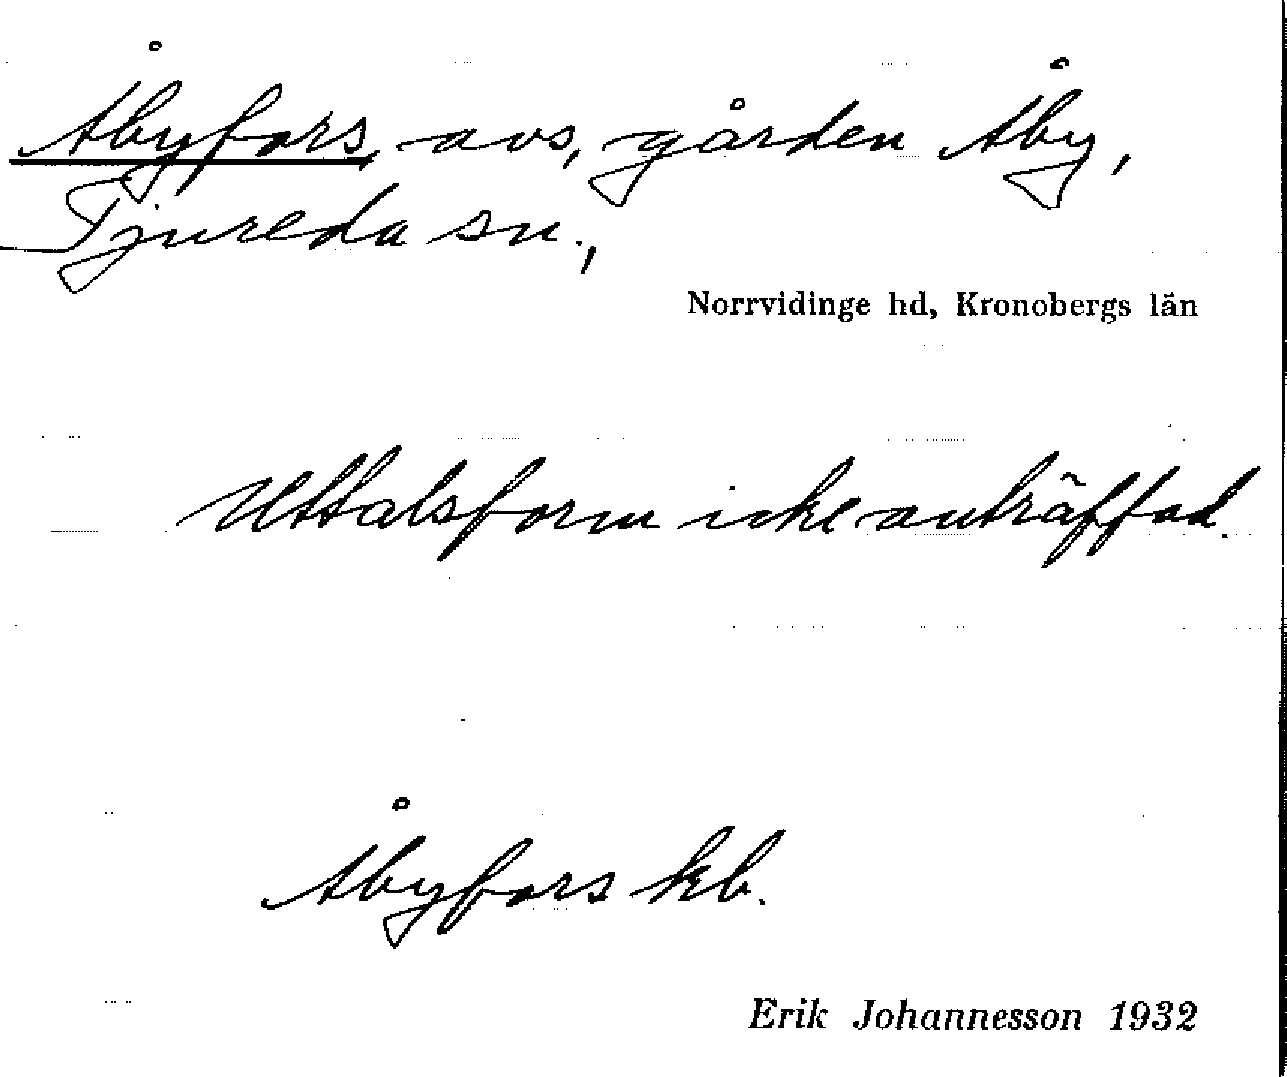 Åbyfors, avs, gården Åby,
Tjureda sn.,
Norrvidinge hd, Kronobergs län
Uttalsform icke anträffad.
Åbyfors kb.
Erik Johannesson 1932